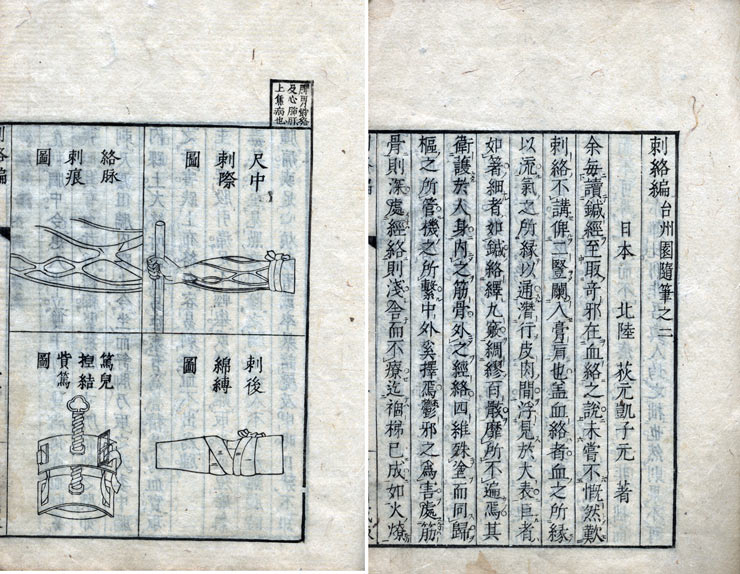 刺絡編 台州園隨筆之二
日本 北陸 荻元凱子元 著
余每讀鍼經至取奇邪在血絡之說未嘗不慨然歎
刺絡不講俾二豎闌入膏肓也盖血絡者血之所縁
以流氣之所縁以通潛行皮肉間浮見於大表巨者
如箸細者如鍼絡繹九竅綢繆百骸靡所不遍焉其
衛護於人身內之筋骨外之經絡四維殊塗而同歸
樞之所管機之所繫中外奚擇焉鬱邪之爲害處筋
骨則深處經絡則淺舍而不療迄禍梯已成如火燎
及心肺脈
上焦病也
尺中
刺際
圖
絡脉
刺痕
圖
刺後
綿縛
圖
篤兒
揑結
貲篤
圖
刺絡編